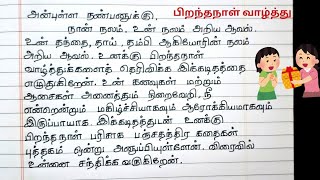 அன்புள்ள நண்பனுக்கு, பிறந்தநாள் வாழ்த்து
நான் நலம், உன் நலம் அறிய ஆவல்.
உன் தந்தை, தாய், தம்பி ஆகியோரின் நலம்
அறிய ஆவல். உனக்கு பிறந்தநாள்
வாழ்த்துக்களைத் தெரிவிக்க இக்கடிதத்தை
எழுதுகிறேன். உன் கனவுகள் மற்றும்
ஆசைகள் அனைத்தும் நிறைவேறி, நீ
என்றென்றும் மகிழ்ச்சியாகவும் ஆரோக்கியமாகவும்
இருப்பாயாக. இக்கடிதத்துடன் உனக்கு
பிறந்தநாள் பரிசாக பஞ்சதந்திர கதைகள்
புத்தகம் ஒன்று அனுப்பியுள்ளேன். விரைவில்
உன்னை சந்திக்க வருகிறேன்.